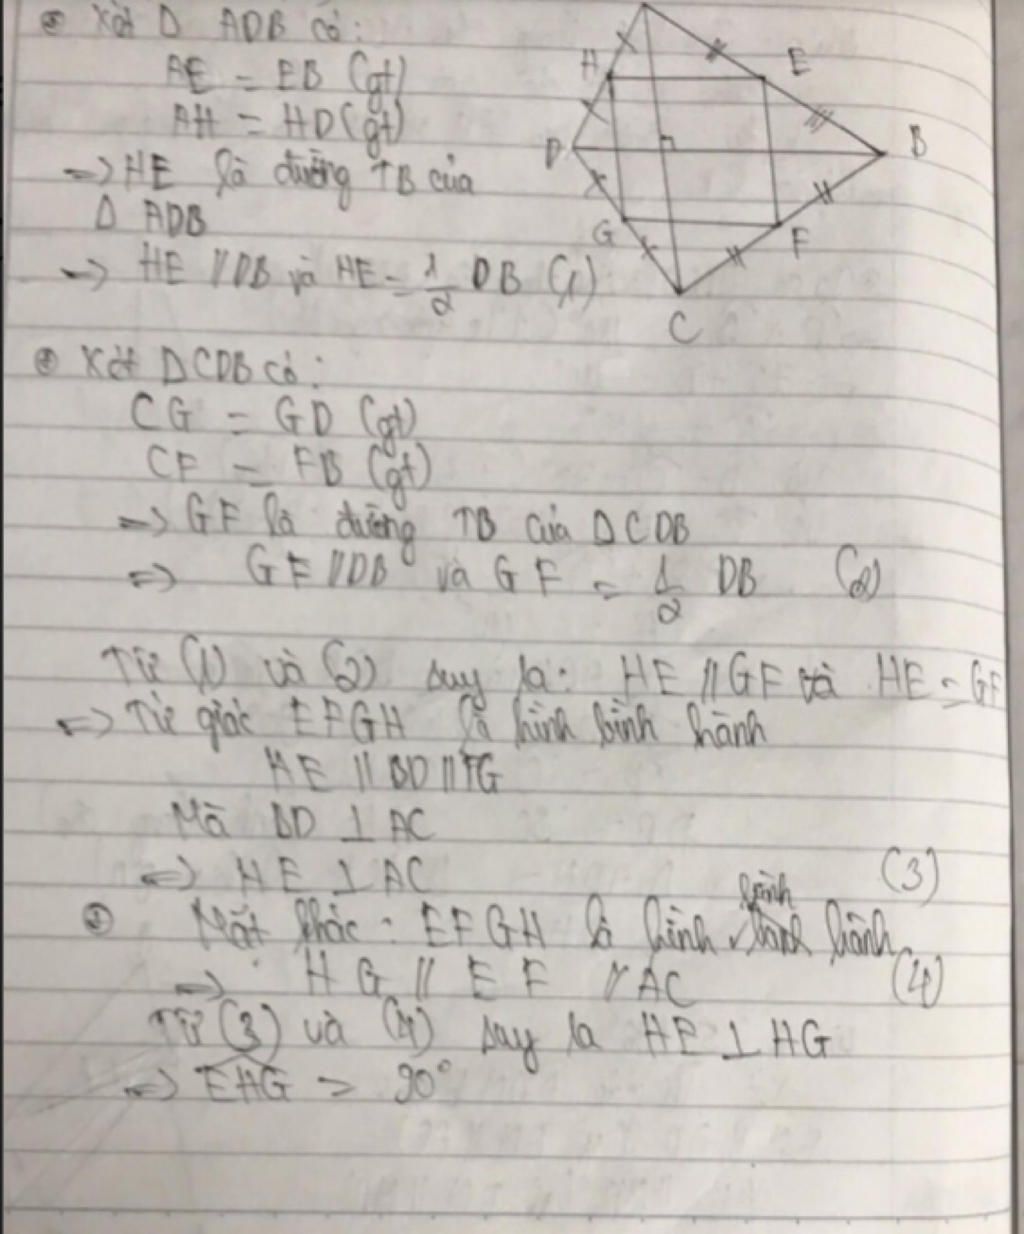 Xét Δ ADB có:
AE = EB (gt)
AH = HD (gt)
=> HE là đường TB của
Δ ADB
=> HE // DB và HE = 1/2 DB (1)
H
E
D
B
G
F
C
Xét Δ CDB có:
CG = GD (gt)
CF = FB (gt)
=> GF là đường TB của Δ CDB
=> GF // DB và GF = 1/2 DB (2)
Từ (1) và (2) suy ra: HE // GF và HE = GF
=> Tứ giác EFGH là hình bình hành
HE // BD // FG
Mà BD ⊥ AC
=> HE ⊥ AC (3)
Mặt khác: EFGH là hình bình hành
=> HG // EF // AC (4)
Từ (3) và (4) suy ra HE ⊥ HG
=> EHG = 90°